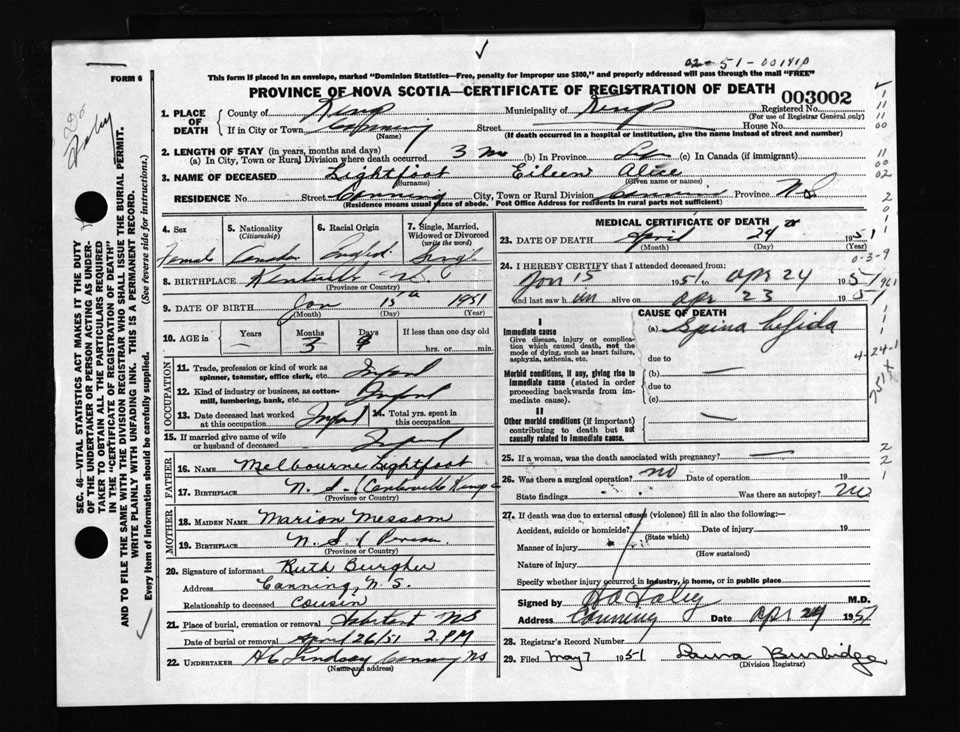 02-51-001410
FORM 6
This form if placed in an envelope, marked "Dominion Statistics—Free, penalty for improper use $300," and properly addressed will pass through the mail "FREE"
PROVINCE OF NOVA SCOTIA—CERTIFICATE OF REGISTRATION OF DEATH
003002
1. PLACE OF DEATH
County of Kings
Municipality of Kings
Registered No.
(For use of Registrar General only)
If in City or Town Canning
(Name)
Street
House No.
(If death occurred in a hospital or institution, give the name instead of street and number)
2. LENGTH OF STAY (in years, months and days)
(a) In City, Town or Rural Division where death occurred 3 mo (b) In Province Life (c) In Canada (if immigrant)
3. NAME OF DECEASED Lightfoot Eileen Alice
(Surname) (Given name or names)
RESIDENCE No. Street Canning City, Town or Rural Division Canning Province N S
(Residence means usual place of abode. Post Office Address for residents in rural parts not sufficient)
4. Sex
Female
5. Nationality
(Citizenship)
Canadian
6. Racial Origin
English
7. Single, Married, Widowed or Divorced
(write the word)
Single
8. BIRTHPLACE Kentville N.S.
(Province or Country)
9. DATE OF BIRTH Jan 15th 1951
(Month) (Day) (Year)
10. AGE in
Years Months Days If less than one day old
— 3 9 hrs. or min.
OCCUPATION
11. Trade, profession or kind of work as spinner, teamster, office clerk, etc. Infant
12. Kind of industry or business, as cotton-mill, lumbering, bank, etc. Infant
13. Date deceased last worked at this occupation Infant
14. Total yrs. spent in this occupation
15. If married give name of wife or husband of deceased Infant
FATHER
16. NAME Melbourne Lightfoot
17. BIRTHPLACE N. S. (Centerville Kings Co
(Province or Country)
MOTHER
18. MAIDEN NAME Marion Messom
19. BIRTHPLACE N. S. (
(Province or Country)
20. Signature of informant Ruth Burgher
Address Canning, N. S.
Relationship to deceased Cousin
21. Place of burial, cremation or removal Habitant NS
Date of burial or removal April 26/51 2. PM
22. UNDERTAKER H C Lindsay Canning NS
(Name and address)
MEDICAL CERTIFICATE OF DEATH
23. DATE OF DEATH April 24 1951
(Month) (Day) (Year)
24. I HEREBY CERTIFY that I attended deceased from:
Jan 15 1951 to Apr 24 1951
and last saw h im alive on Apr 23 1951
CAUSE OF DEATH
I
Immediate cause
Give disease, injury or complication which caused death, not the mode of dying, such as heart failure, asphyxia, asthenia, etc.
(a) Spina bifida
due to
Morbid conditions, if any, giving rise to immediate cause (stated in order proceeding backwards from immediate cause).
(b) —
due to
(c)
II
Other morbid conditions (if important) contributing to death but not causally related to immediate cause.
—
25. If a woman, was the death associated with pregnancy? —
26. Was there a surgical operation? no Date of operation 19
State findings Was there an autopsy? no
27. If death was due to external causes (violence) fill in also the following:—
Accident, suicide or homicide? Date of injury 19
(State which)
Manner of injury
(How sustained)
Nature of injury
Specify whether injury occurred in industry, in home, or in public place
Signed by M.D.
Address Canning Date Apr 24 1951
28. Registrar's Record Number
29. Filed May 7 1951 Laura Burbidge
(Division Registrar)
SEC. 46—VITAL STATISTICS ACT MAKES IT THE DUTY
OF THE UNDERTAKER OR PERSON ACTING AS UNDER-
TAKER TO OBTAIN ALL THE PARTICULARS REQUIRED
IN THE "CERTIFICATE OF REGISTRATION OF DEATH"
AND TO FILE THE SAME WITH THE DIVISION REGISTRAR WHO SHALL ISSUE THE BURIAL PERMIT.
WRITE PLAINLY WITH UNFADING INK. THIS IS A PERMANENT RECORD.
Every item of information should be carefully supplied. (See reverse side for instructions.)
0-3-9
4-24-1